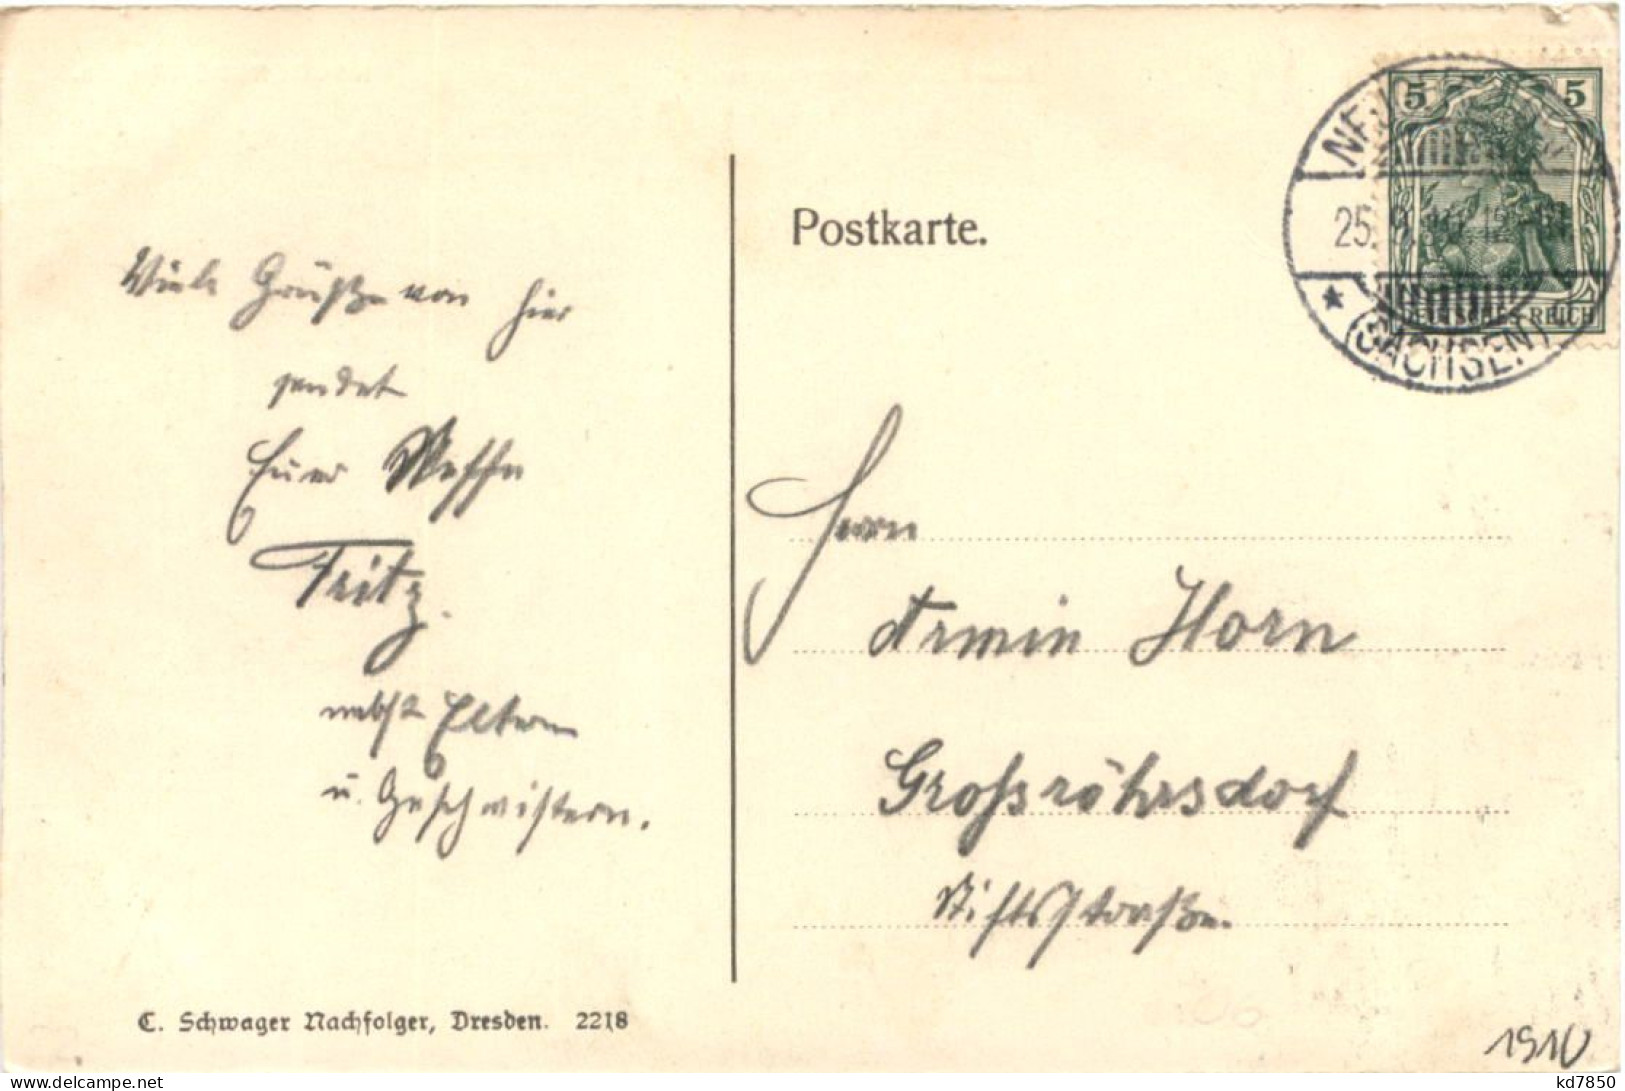 Viele Grüße von hier
sendet
Euer Neffe
Fritz.
nebst Eltern
u. Geschwistern.
C. Schwager Nachfolger, Dresden. 2218
Postkarte.
5 5
25.
DEUTSCHES REICH
(SACHSEN)
Herrn
Armin Horn
Großröhrsdorf
Stiftsstraße.
1910
kd7850